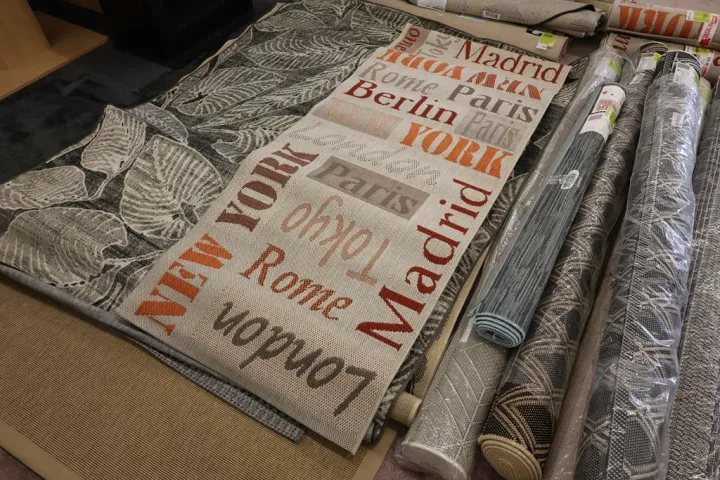 Tokyo
Madrid
NEW YORK
Rome Paris
Berlin
NEW YORK
Paris
London
Paris
NEW YORK
Madrid
Tokyo
Rome
London